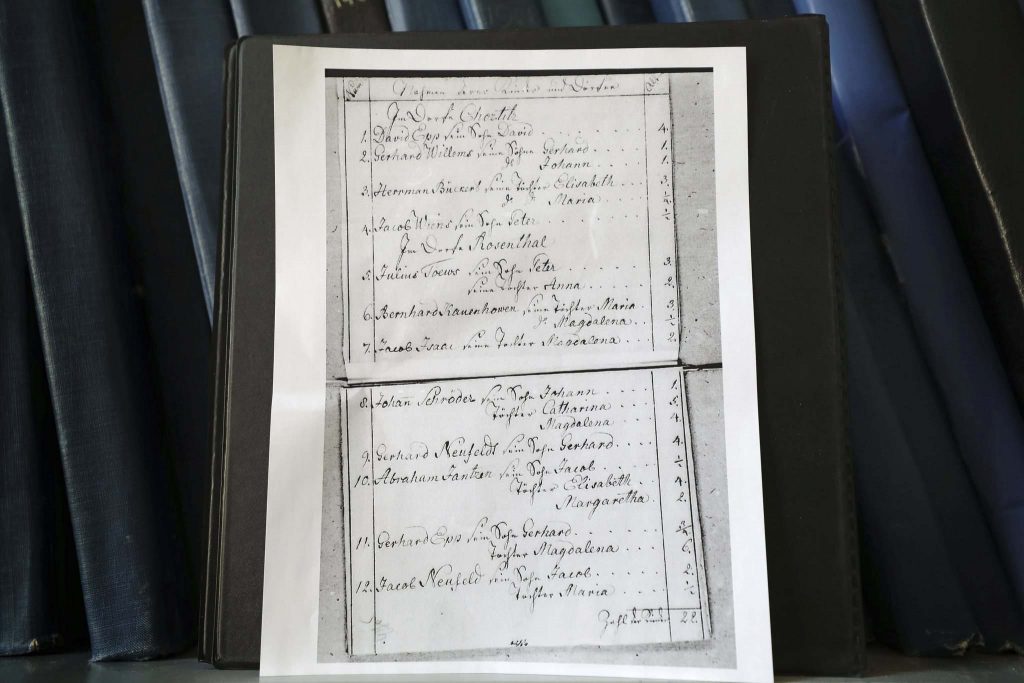 Nahmen derer Kinder und Dörfer
Im Dorfe Chortitz
1. David Epp sein Sohn David . . . . . . . 4.
2. Gerhard Willems seine Söhne Gerhard . . . . 1.
do Johann . . . . 1.
3. Herrman Bückert seine Töchter Elisabeth . . . 3.
do do Maria . . . .
4. Jacob Wiens sein Sohn Peter . . . . . . . ½.
Im Dorfe Rosenthal
5. Julius Toews sein Sohn Peter . . . . . . 3.
seine Töchter Anna . . . . 2.
6. Bernhard Rauenhowen seine Töchter Maria . 3.
do Magdalena . . ½.
7. Jacob Isaac seine Tochter Magdalena . . . 2.
8. Johann Schröder sein Sohn Johann . . . . 1.
Töchter Catharina
Magdalena . . . . 4.
9. Gerhard Neufeldt sein Sohn Gerhard . . . . 4.
10. Abraham Jantzen sein Sohn Jacob . . . . ½.
Töchter Elisabeth . . 4.
Margaretha . 2.
11. Gerhard Epp sein Sohn Gerhard . . . . . ¾.
Töchter Magdalena . . . 6.
12. Jacob Neufeld sein Sohn Jacob . . . . . 2.
Töchter Maria . . . . ½.
Zahl der Kinder 22.